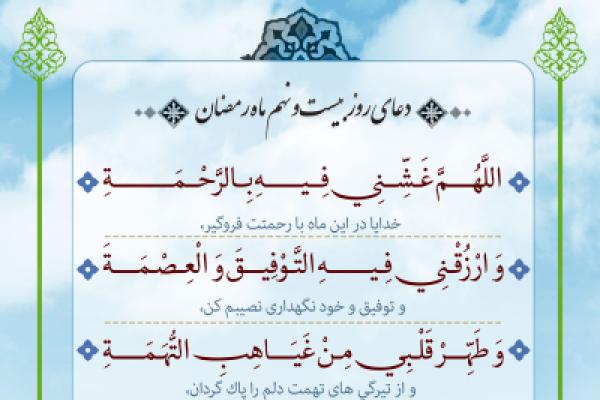 دعای روز بیست و نهم ماه رمضان
اللَّهُمَّ غَشِّنِي فِيهِ بِالرَّحْمَةِ
خدایا در این ماه با رحمتت فروگیر،
وَ ارْزُقْنِي فِيهِ التَّوْفِيقَ وَ الْعِصْمَةَ
و توفیق و خود نگهداری نصیبم کن،
وَ طَهِّرْ قَلْبِي مِنْ غَيَاهِبِ التُّهَمَةِ
و از تیرگي هاى تهمت دلم را پاك گردان،